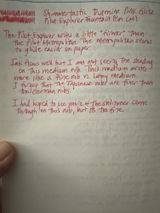 Shimmertastic Diamine Pink Glitz
Pilot Explorer Fountain Pen (M)
The Pilot Explorer writes a little "firmer" than
the Pilot Metropolitan. The Metropolitan seems
to glide easier on paper.
Ink flows well but I am not seeing the shading
on this medium nib. This medium writes
more like a fine nib vs. Lamy medium.
I forgot that the Japanese nibs are finer than
the German nibs.
I had hoped to see more of the shimmer come
through on this nib, but it's too fine.